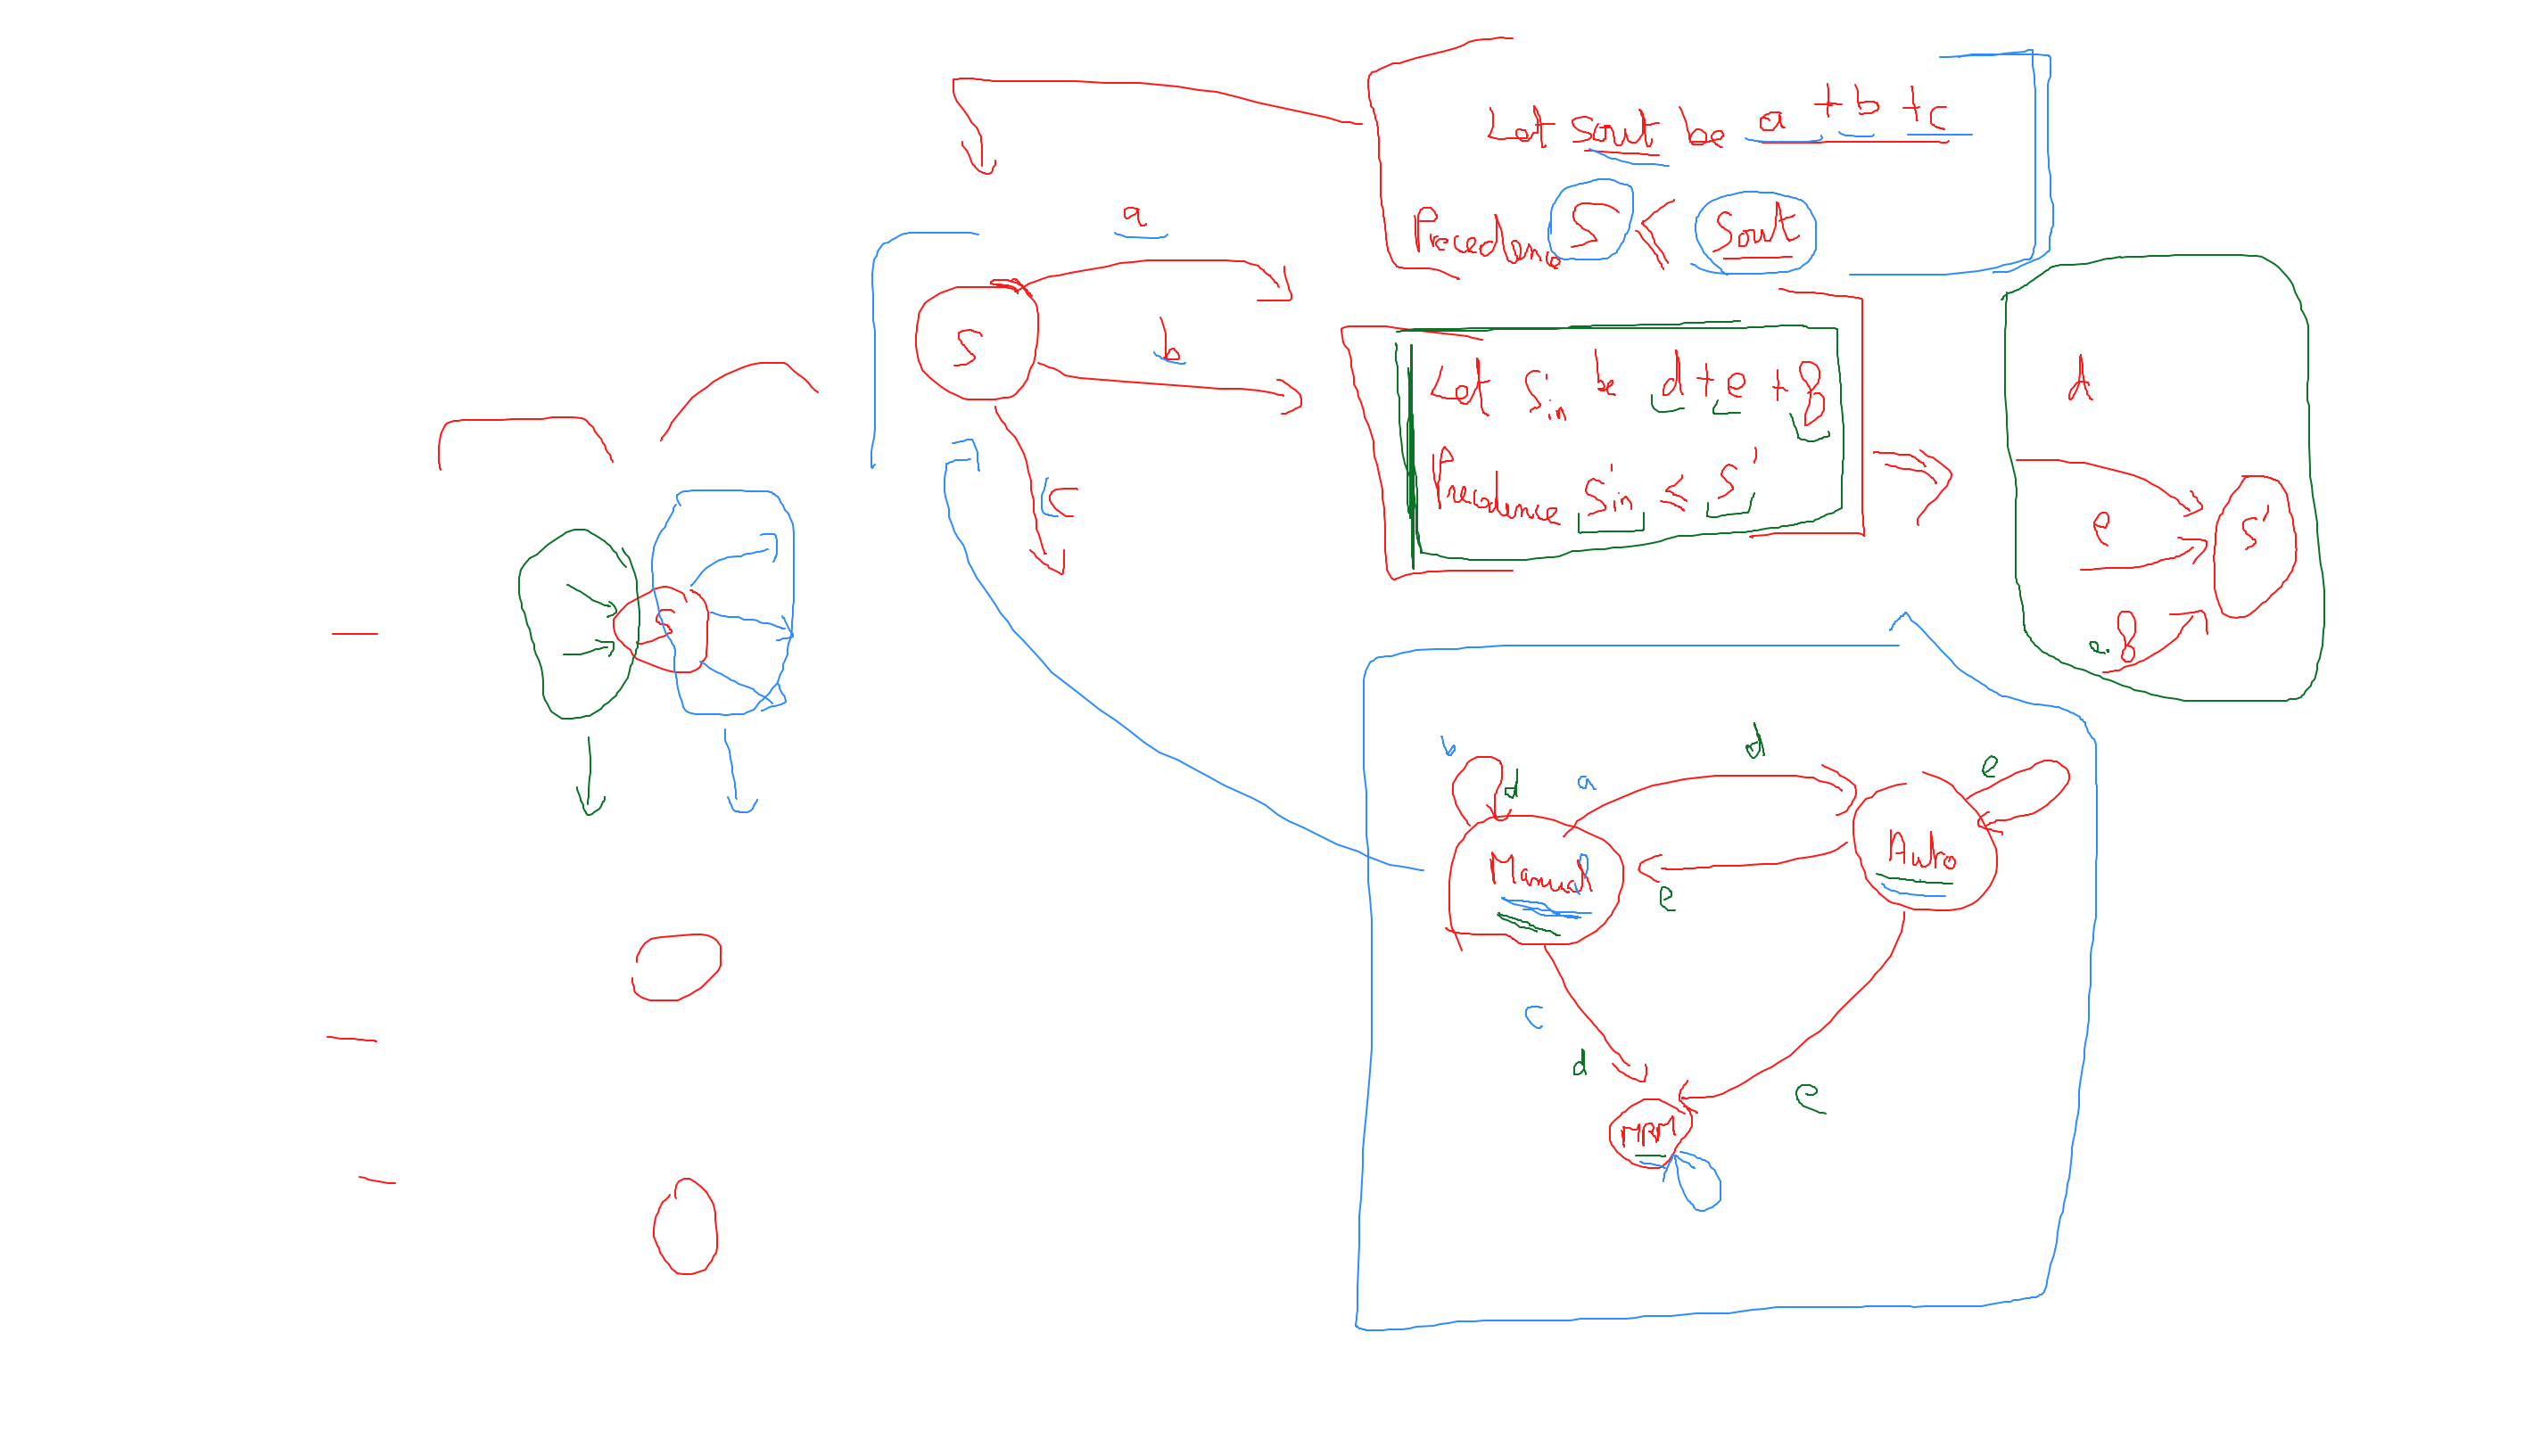 Let Sout be a + b + c
Precedence S < Sout
a
S
b
c
Let Sin be d + e + f
Precedence Sin ≤ S'
d
e
S'
e. f
S
b
d
a
d
e
Manual
Auto
e
c
d
e
MRM